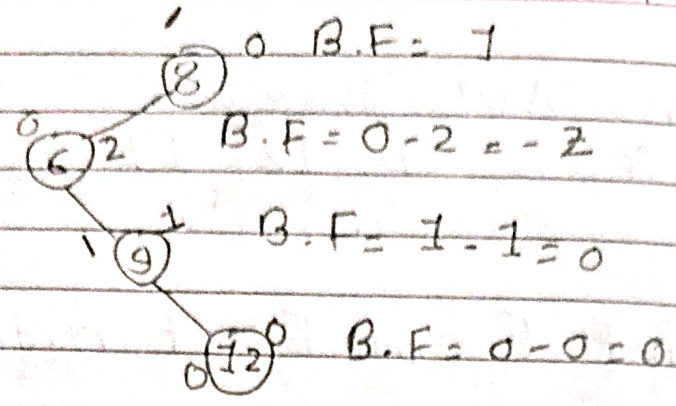 1 8 0 B.F = 1
0 6 2 B.F = 0 - 2 = - 2
1 9 1 B.F = 1 - 1 = 0
0 12 0 B.F = 0 - 0 = 0